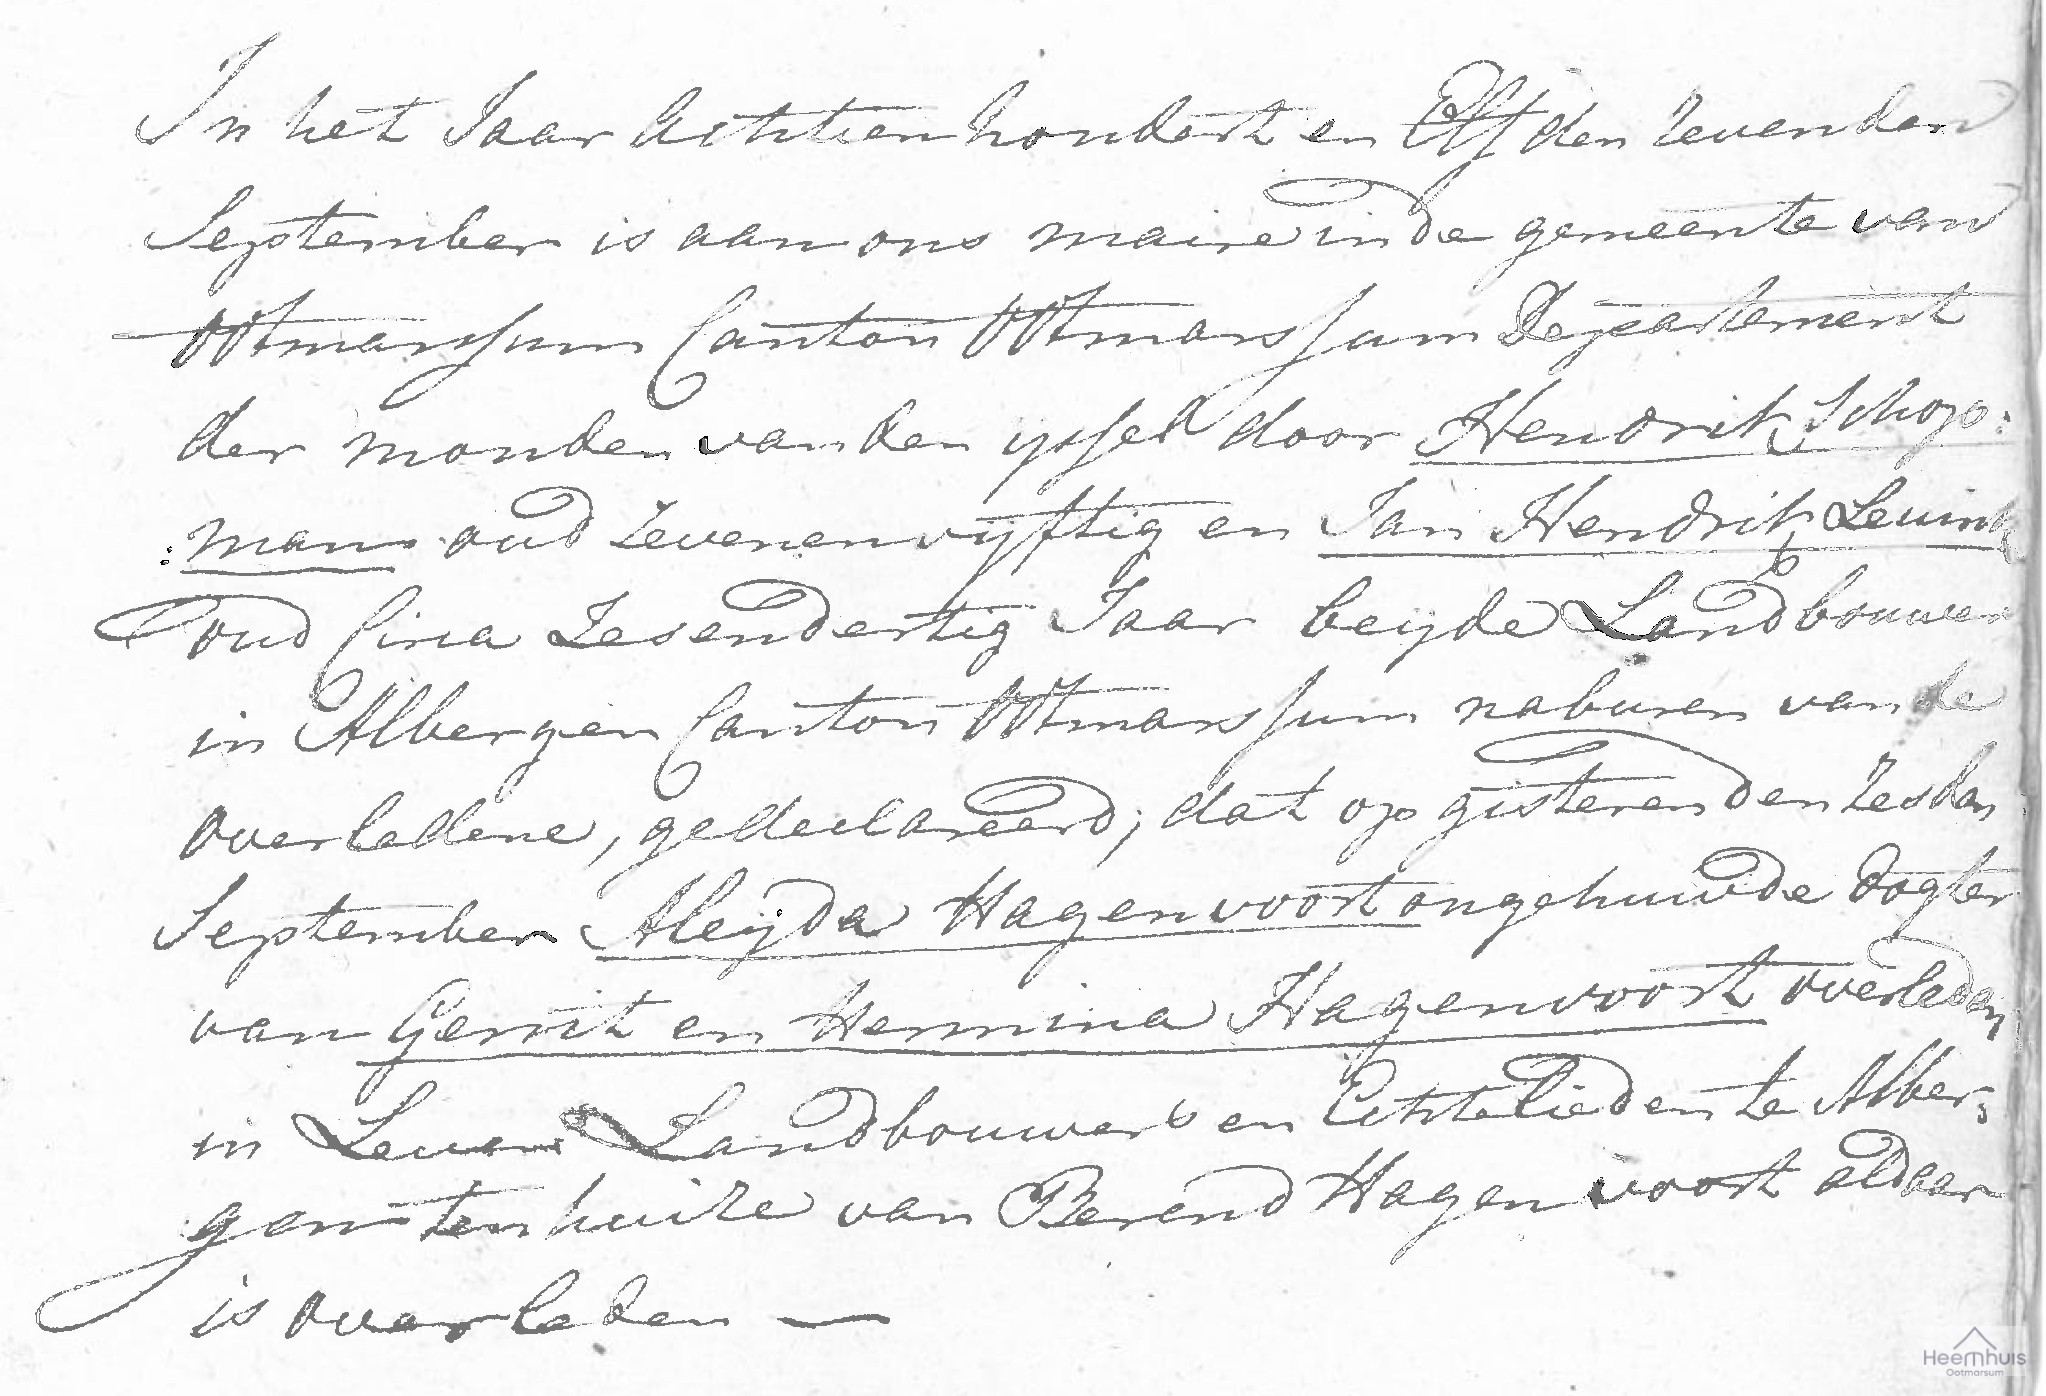 In het Jaar Achttienhondert en Elf den Zevenden
September is aan ons maire in de gemeente van
Otmarssum Canton Otmarssum Departement
der monden van den yssel door Hendrik Schop:
:man oud Zevenenvyftig en Jan Hendrik Leuink
oud Circa Zesendertig Jaar beyde Landbouwers
in Albergen Canton Otmarssum naburen van de
overledene, gedeclareerd; dat op gisteren den Zesden
September Aleyda Hagenvoort ongehuwde dogter
van Gerrit en Hermina Hagenvoort overleden
in Leven Landbouwers en Echtelieden te Alber:
gen ten huize van Berend Hagenvoort aldaar
is overleden —
Heemhuis
Ootmarsum